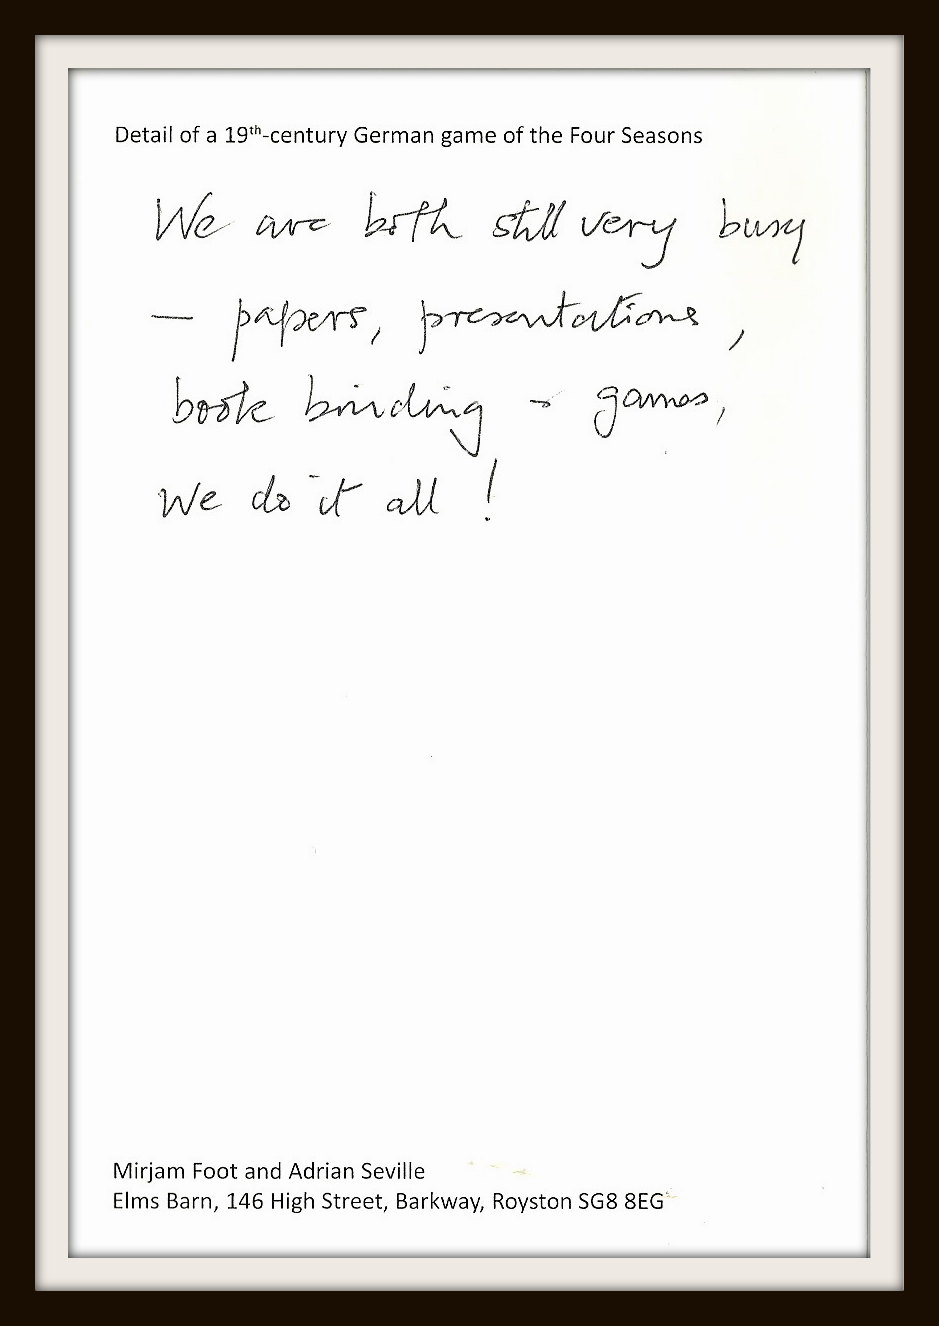 Detail of a 19th-century German game of the Four Seasons
We are both still very busy
— papers, presentations,
book binding + games,
We do it all !
Mirjam Foot and Adrian Seville
Elms Barn, 146 High Street, Barkway, Royston SG8 8EG